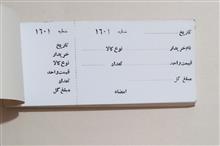 شماره ۱۶۰۱
تاریخ
نام خریدار نوع کالا
قیمت واحد تعداد
مبلغ کل
امضاء
شماره ۱۶۰۱
تاریخ
خریدار
نوع کالا
قیمت واحد
تعداد
مبلغ کل